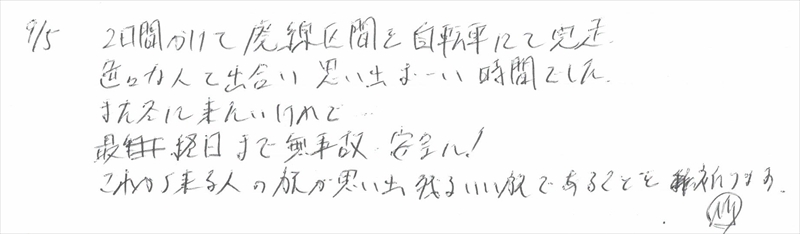 9/5 2日間かけて廃線区間を自転車にて完走
色々な人て出会い 思い出ま〜い 時間でした.
また冬に来たいけれど…
最終日まで無事故 安全に!
これから来る人の旅が思い出残るいい旅であることを 祈ってます.